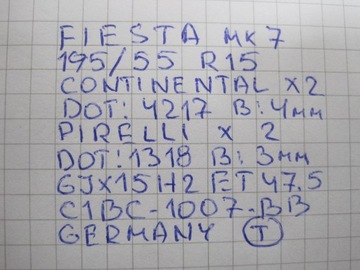 FIESTA MK7
195/55 R15
CONTINENTAL X2
DOT: 4217 B: 4MM
PIRELLI X 2
DOT: 1318 B: 3MM
6JX15H2 ET 47.5
C1BC-1007-BB
GERMANY T